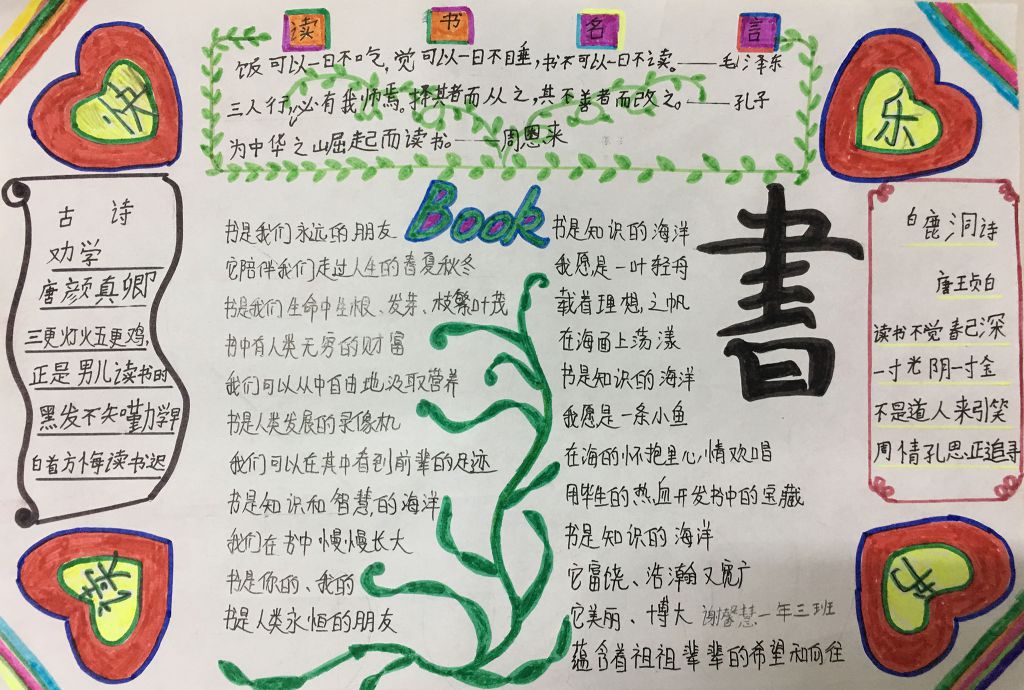 读书名言
饭可以一日不吃,觉可以一日不睡,书不可以一日不读。——毛泽东
三人行,必有我师焉。择其善者而从之,其不善者而改之。——孔子
为中华之山崛起而读书。——周恩来
快
乐
古诗
劝学
唐颜真卿
三更灯火五更鸡,
正是男儿读书时
黑发不知勤学早
白首方悔读书迟
Book
书是我们永远的朋友
它陪伴我们走过人生的春夏秋冬
书是我们生命中生根、发芽、枝繁叶茂
书中有人类无穷的财富
我们可以从中自由地汲取营养
书是人类发展的录像机
我们可以在其中看到前辈的足迹
书是知识和智慧的海洋
我们在书中慢慢长大
书是你的、我的
书是人类永恒的朋友
书是知识的海洋
我愿是一叶轻舟
载着理想之帆
在海面上荡漾
书是知识的海洋
我愿是一条小鱼
在海的怀抱里心情欢唱
用毕生的热血开发书中的宝藏
书是知识的海洋
它富饶、浩瀚又宽广
它美丽、博大
谢馨慧一年三班
蕴含着祖祖辈辈的希望和向往
書
白鹿洞诗
唐王贞白
读书不觉春已深
一寸光阴一寸金
不是道人来引笑
周情孔思正追寻
读
书